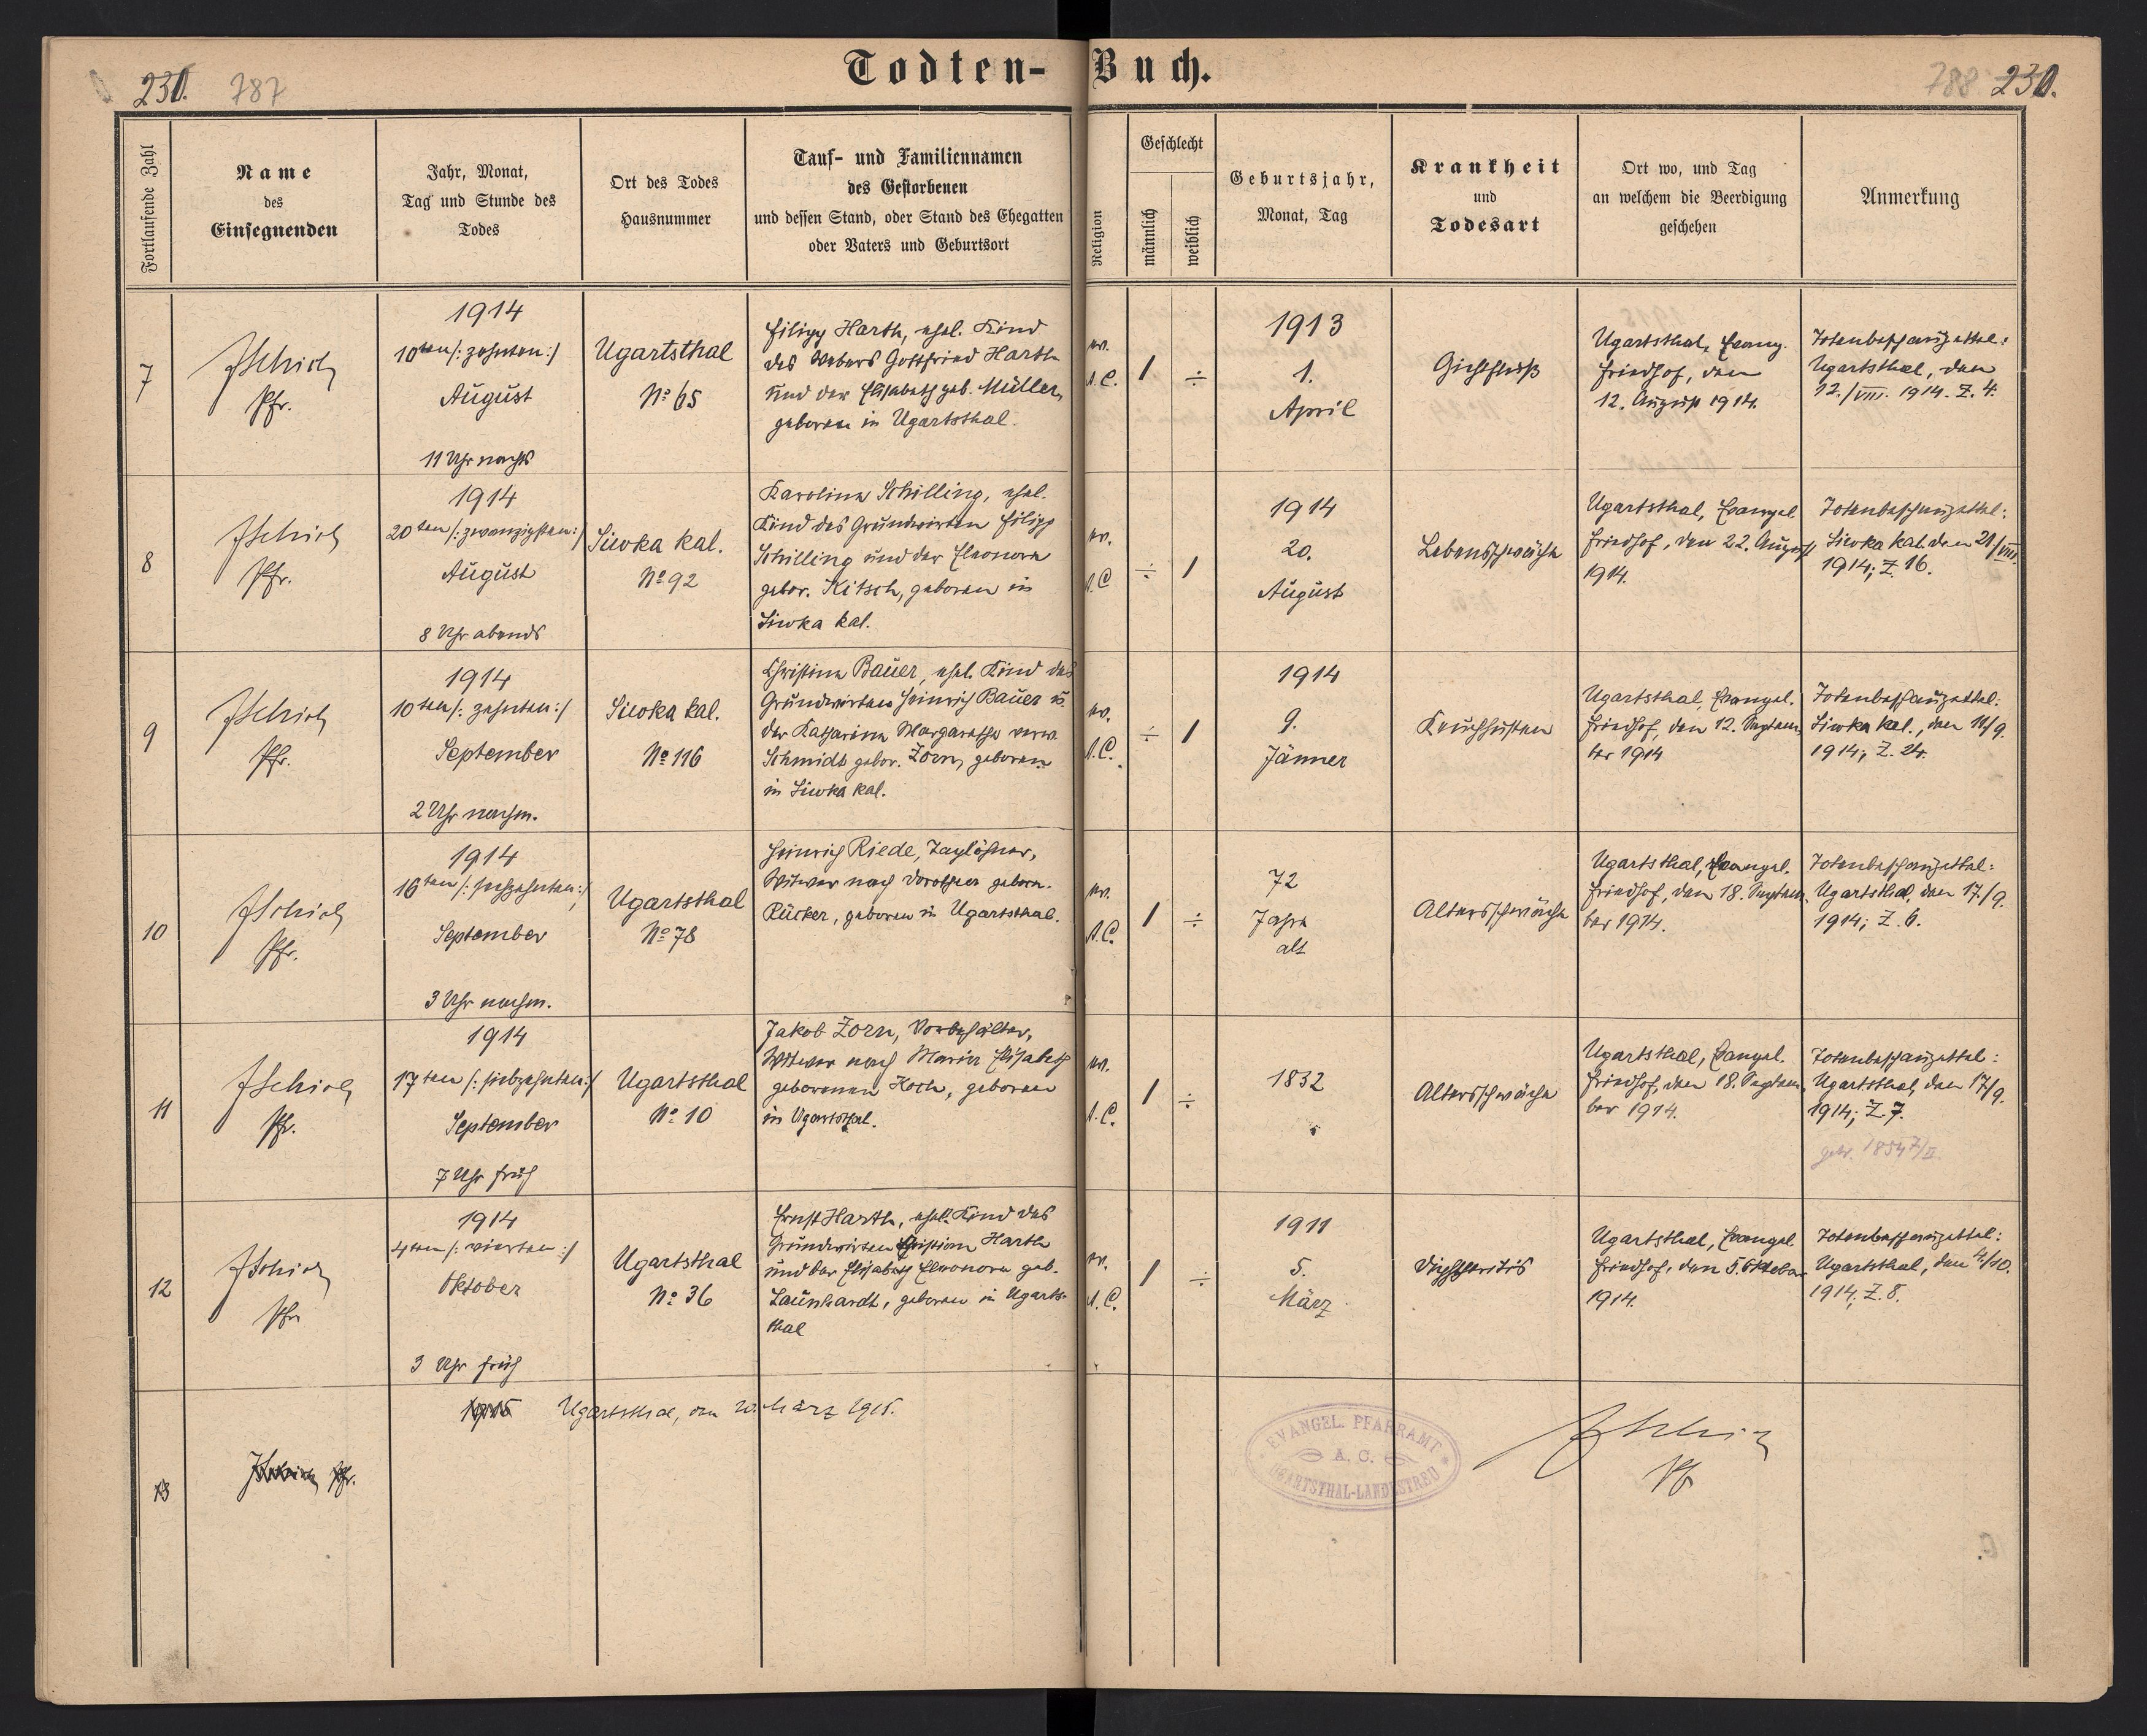 Todten-Buch.
230. 787
788 230.
Fortlaufende Zahl
Name
des
Einsegnenden
Jahr, Monat,
Tag und Stunde des
Todes
Ort des Todes
Hausnummer
Tauf- und Familiennamen
des Gestorbenen
und dessen Stand, oder Stand des Ehegatten
oder Vaters und Geburtsort
Religion
Geschlecht
männlich
weiblich
Geburtsjahr,
Monat, Tag
Krankheit
und
Todesart
Ort wo, und Tag
an welchem die Beerdigung
geschehen
Anmerkung
7
Pfr.
1914
10ten /: zehnten :/
August
11 Uhr nachts
Ugartsthal
No 65
Filipp Harth, ehel. Kind
des Webers Gottfried Harth
und der Elisabeth geb. Müller,
geboren in Ugartsthal.
ev.
A.C.
1 ÷
1913
1.
April
Ugartsthal, Evang.
Friedhof, den
12. August 1914.
Totenbeschauzettel:
Ugartsthal, den
12./VIII. 1914. Z. 4.
8
Pfr.
1914
20ten /: zwanzigsten :/
August
8 Uhr abends
Siwka kal.
No 92
Karolina Schilling, ehel.
Kind des Grundwirten Filipp
Schilling und der Eleonora
gebor. Kitsch, geboren in
Siwka kal.
ev.
A.C
÷ 1
1914
20.
August
Lebensschwäche
Ugartsthal, Evangel.
Friedhof, den 22. August
1914.
Totenbeschauzettel:
Siwka kal. den 21/VIII.
1914; Z. 16.
9
Pfr.
1914
10ten /: zehnten :/
September
2 Uhr nachm.
Siwka kal.
No 116
Christina Bauer, ehel. Kind des
Grundwirten Heinrich Bauer u.
der Katharina Margaretha verw.
Schmidt gebor. Zorn, geboren
in Siwka kal.
ev.
A.C.
÷ 1
1914
9.
Jänner
Keuchhusten
Ugartsthal, Evangel.
Friedhof, den 12. Septem-
ber 1914
Totenbeschauzettel:
Siwka kal., den 11/9.
1914; Z. 24.
10
Pfr.
1914
16ten /: sechzehnten :/
September
3 Uhr nachm.
Ugartsthal
No 78
Heinrich Riede, Taglöhner,
Witwer nach Dorothea gebor.
Rücker, geboren in Ugartsthal.
ev.
A.C.
1 ÷
72
Jahre
alt
Altersschwäche
Ugartsthal, Evangel.
Friedhof, den 18. Septem-
ber 1914.
Totenbeschauzettel:
Ugartsthal, den 17/9.
1914; Z. 6.
11
Pfr.
1914
17ten /: siebzehnten :/
September
7 Uhr früh
Ugartsthal
No 10
Jakob Zorn, Vorbehälter,
Witwer nach Maria Elisabeth
geborenen Koch, geboren
in Ugartsthal.
ev.
A.C.
1 ÷
1832
Altersschwäche
Ugartsthal, Evangel.
Friedhof, den 18. Septem-
ber 1914.
Totenbeschauzettel:
Ugartsthal, den 17/9.
1914; Z. 7.
12
Pfr
1914
4ten /: vierten :/
Oktober
3 Uhr früh
Ugartsthal
No 36
Ernst Harth, ehel. Kind des
Grundwirten Christian Harth
und der Elisabeth Eleonora geb.
Launhardt, geboren in Ugarts-
thal
ev.
A.C.
1 ÷
1911
5.
März
Diphtheritis
Ugartsthal, Evangel.
Friedhof, den 5. Oktober
1914.
Totenbeschauzettel:
Ugartsthal, den 4/10.
1914; Z. 8.
13
Pfr.
1915
Ugartsthal, den 20. März 1915.
EVANGEL. PFARRAMT
A. C.
UGARTSTHAL-LANDESTREU
Pfr